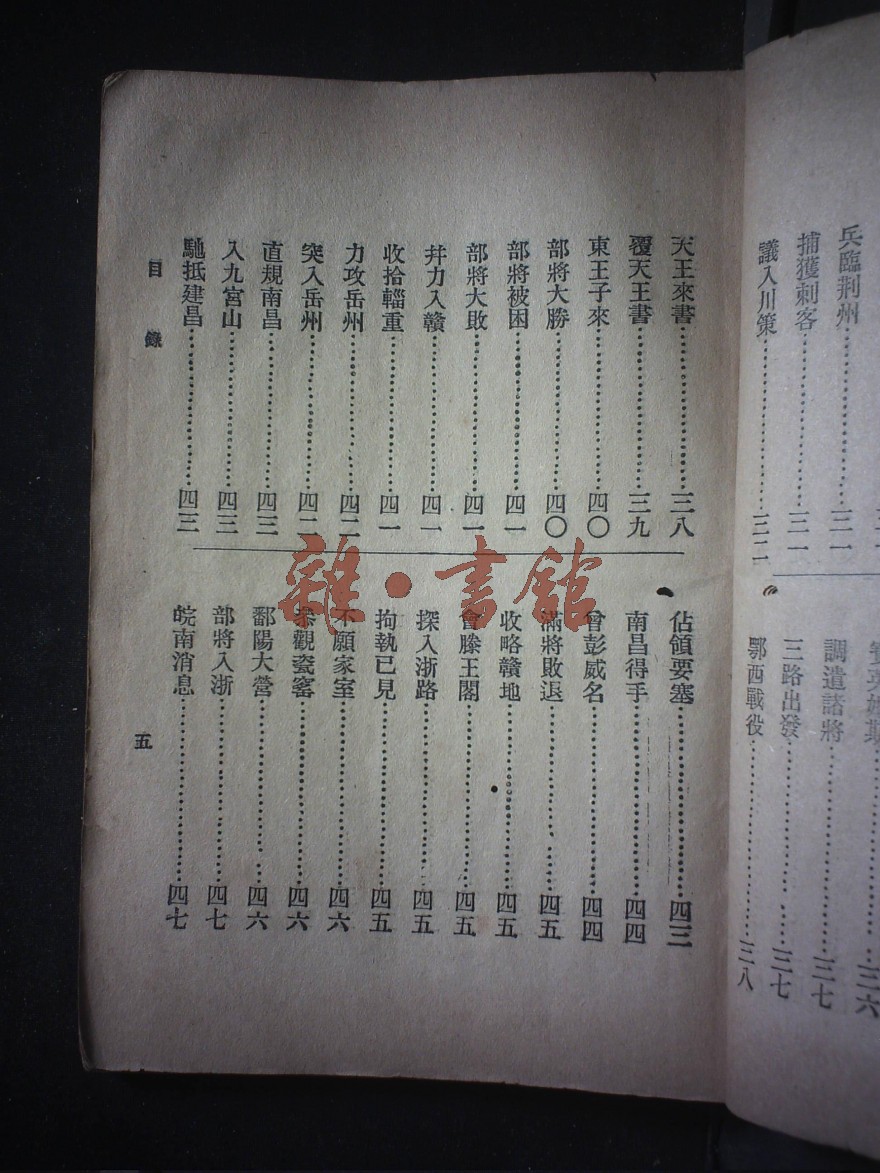 兵臨荆州
捕獲刺客……三一
議入川策……三二
調遣諸將……三七
三路出發……三七
鄂西戰役……三八
天王來書……三八
覆天王書……三九
東王子來……四〇
部將大勝……四〇
部將被困……四一
部將大敗……四一
幷力入贛……四一
收拾輜重……四一
力攻岳州……四二
突入岳州……四二
直規南昌……四三
入九宮山……四三
馳抵建昌……四三
佔領要塞……四三
南昌得手……四四
曾彭威名……四四
滿將敗退……四五
收略贛地……四五
會滕王閣……四五
探入浙路……四五
拘執已見……四五
不願家室……四六
叅觀瓷窰……四六
鄱陽大營……四六
部將入浙……四七
皖南消息……四七
目錄
五
雜·書館